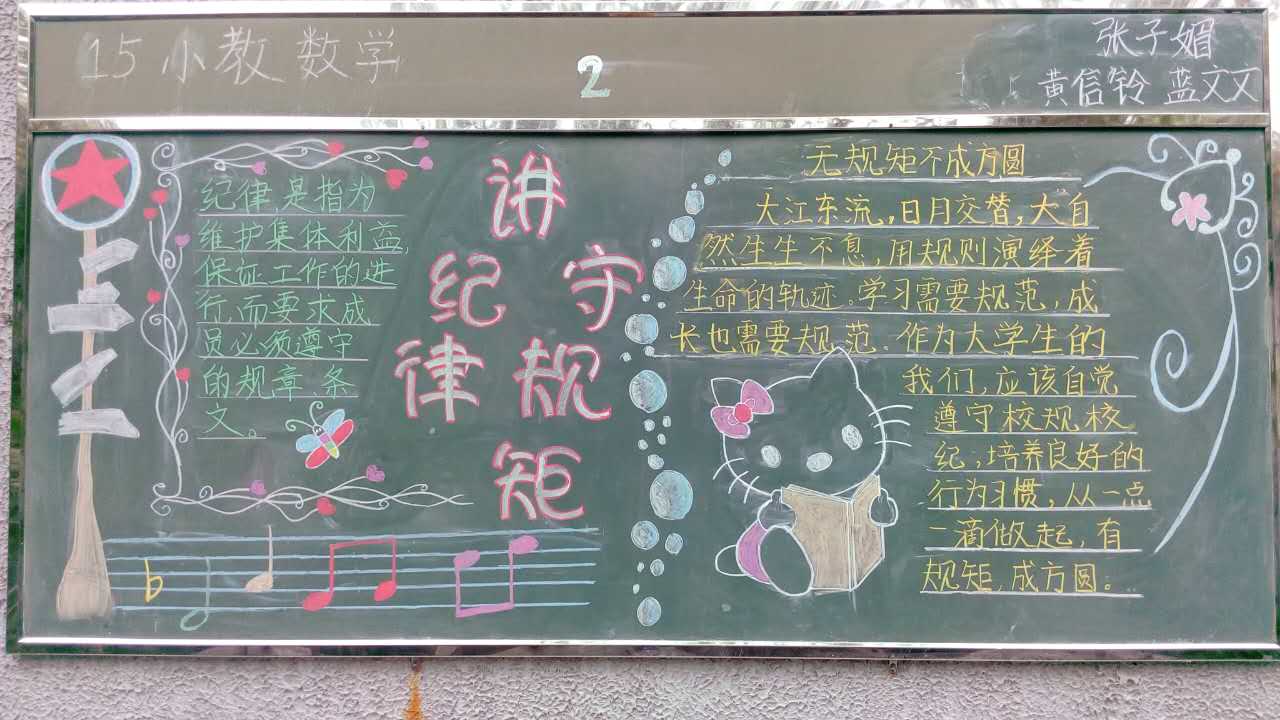 15小教数学
2
张子媚
黄信铃 蓝文文
纪律,是指为
维护集体利益,
保证工作的进
行,而要求成
员必须遵守
的规章、条
文。
讲
纪律
守
规矩
无规矩不成方圆
大江东流,日月交替,大自
然生生不息,用规则演绎着
生命的轨迹。学习需要规范,成
长也需要规范.作为大学生的
我们,应该自觉
遵守校规校
纪,培养良好的
行为习惯,从一点
一滴做起,有
规矩,成方圆。